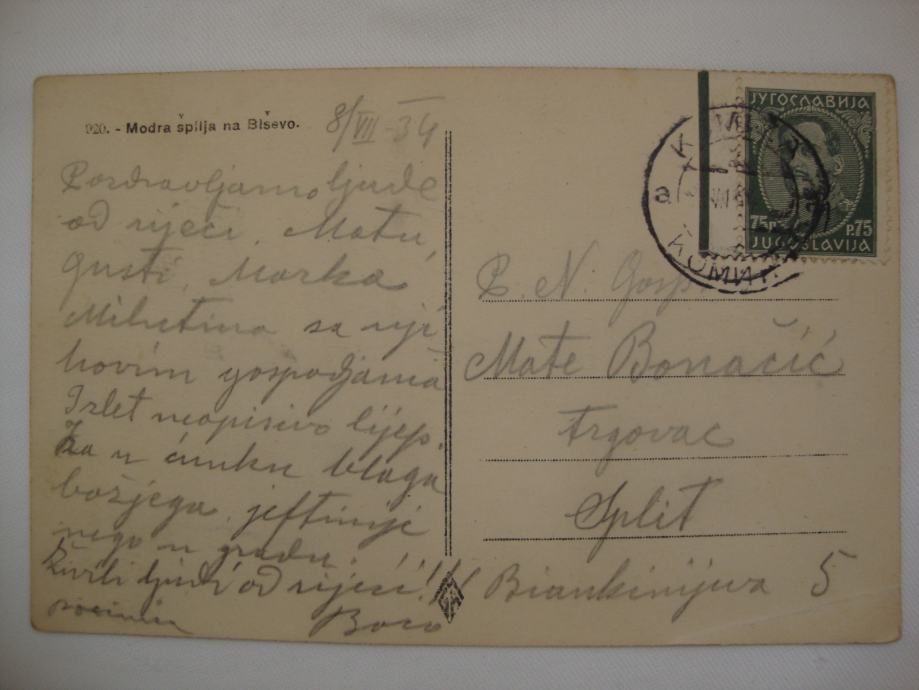 920. - Modra špilja na Biševo.
8/VII-34
Pozdravljamo ljude
od riječi, Matu
Gusti, Marka
Miletina sa nji
hovim gospodjama
Izlet neopisivo lijep.
Za u blaga
božjega, jeftinije
nego u gradu.
Živili ljudi od riječi!!!
Boro
ЈУГОСЛАВИЈА
75p. P.75
JUGOSLAVIJA
KOMIŽA
a
VII
КОМИЖА
P. N. Gosp.
Mate Bonačić
Trgovac
Split
Biankinijeva 5